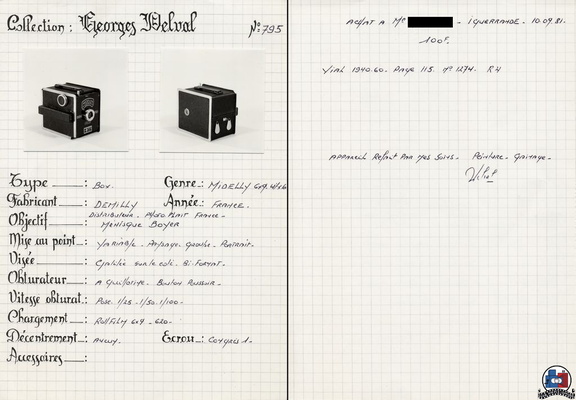 Collection : Georges Delval N°: 795
Type : Box.
Genre : MIDELLY 6x9. 4½x6
Fabricant : DEMILLY
Année : FRANCE.
Distributeur. Photo Plait France -
Objectif : Ménisque BOYER
Mise au point : VARIABLE - Paysage. Groupe. Portrait.
Visée : sur le coté. Bi-Format.
Obturateur : A Guillotine. Bouton Poussoir -
Vitesse obturat : Pose. 1/25 - 1/50. 1/100 -
Chargement : RollFilm 6x9 - 620 -
Décentrement : Aucun.
Ecrou : Congrès 1.
Accessoires :
ACHAT A Mr - IGUERRANDE. 10.09.81.
100F.
VIAL 1940.60. Page 115. n° 1274. R4
APPAREIL Refait Par mes Soins. Peinture. Gainage.